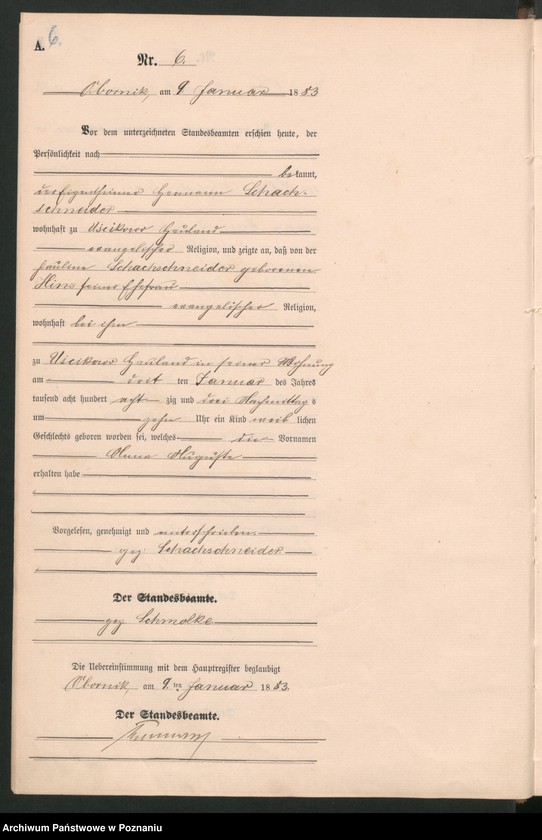 A. 6.
Nr. 6.
Obornik, am 9 Januar 1883
Vor dem unterzeichneten Standesbeamten erschien heute, der
Persönlichkeit nach
bekannt,
der Eigenthümer Hermann Schach-
schneider
wohnhaft zu Uscikowo Hauland
evangelischer Religion, und zeigte an, daß von der
Pauline Schachschneider geborenen
seiner Ehefrau
evangelischer Religion,
wohnhaft bei ihm
zu Uscikowo Hauland in seiner Wohnung
am ten Januar des Jahres
tausend acht hundert acht zig und drei Nachmittags
um zehn Uhr ein Kind weib lichen
Geschlechts geboren worden sei, welches die Vornamen
Auguste
erhalten habe
Vorgelesen, genehmigt und unterschrieben
gez Schachschneider
Der Standesbeamte.
gez Schmolke
Die Uebereinstimmung mit dem Hauptregister beglaubigt
Obornik, am 9ten Januar 1883.
Der Standesbeamte.
Archiwum Państwowe w Poznaniu